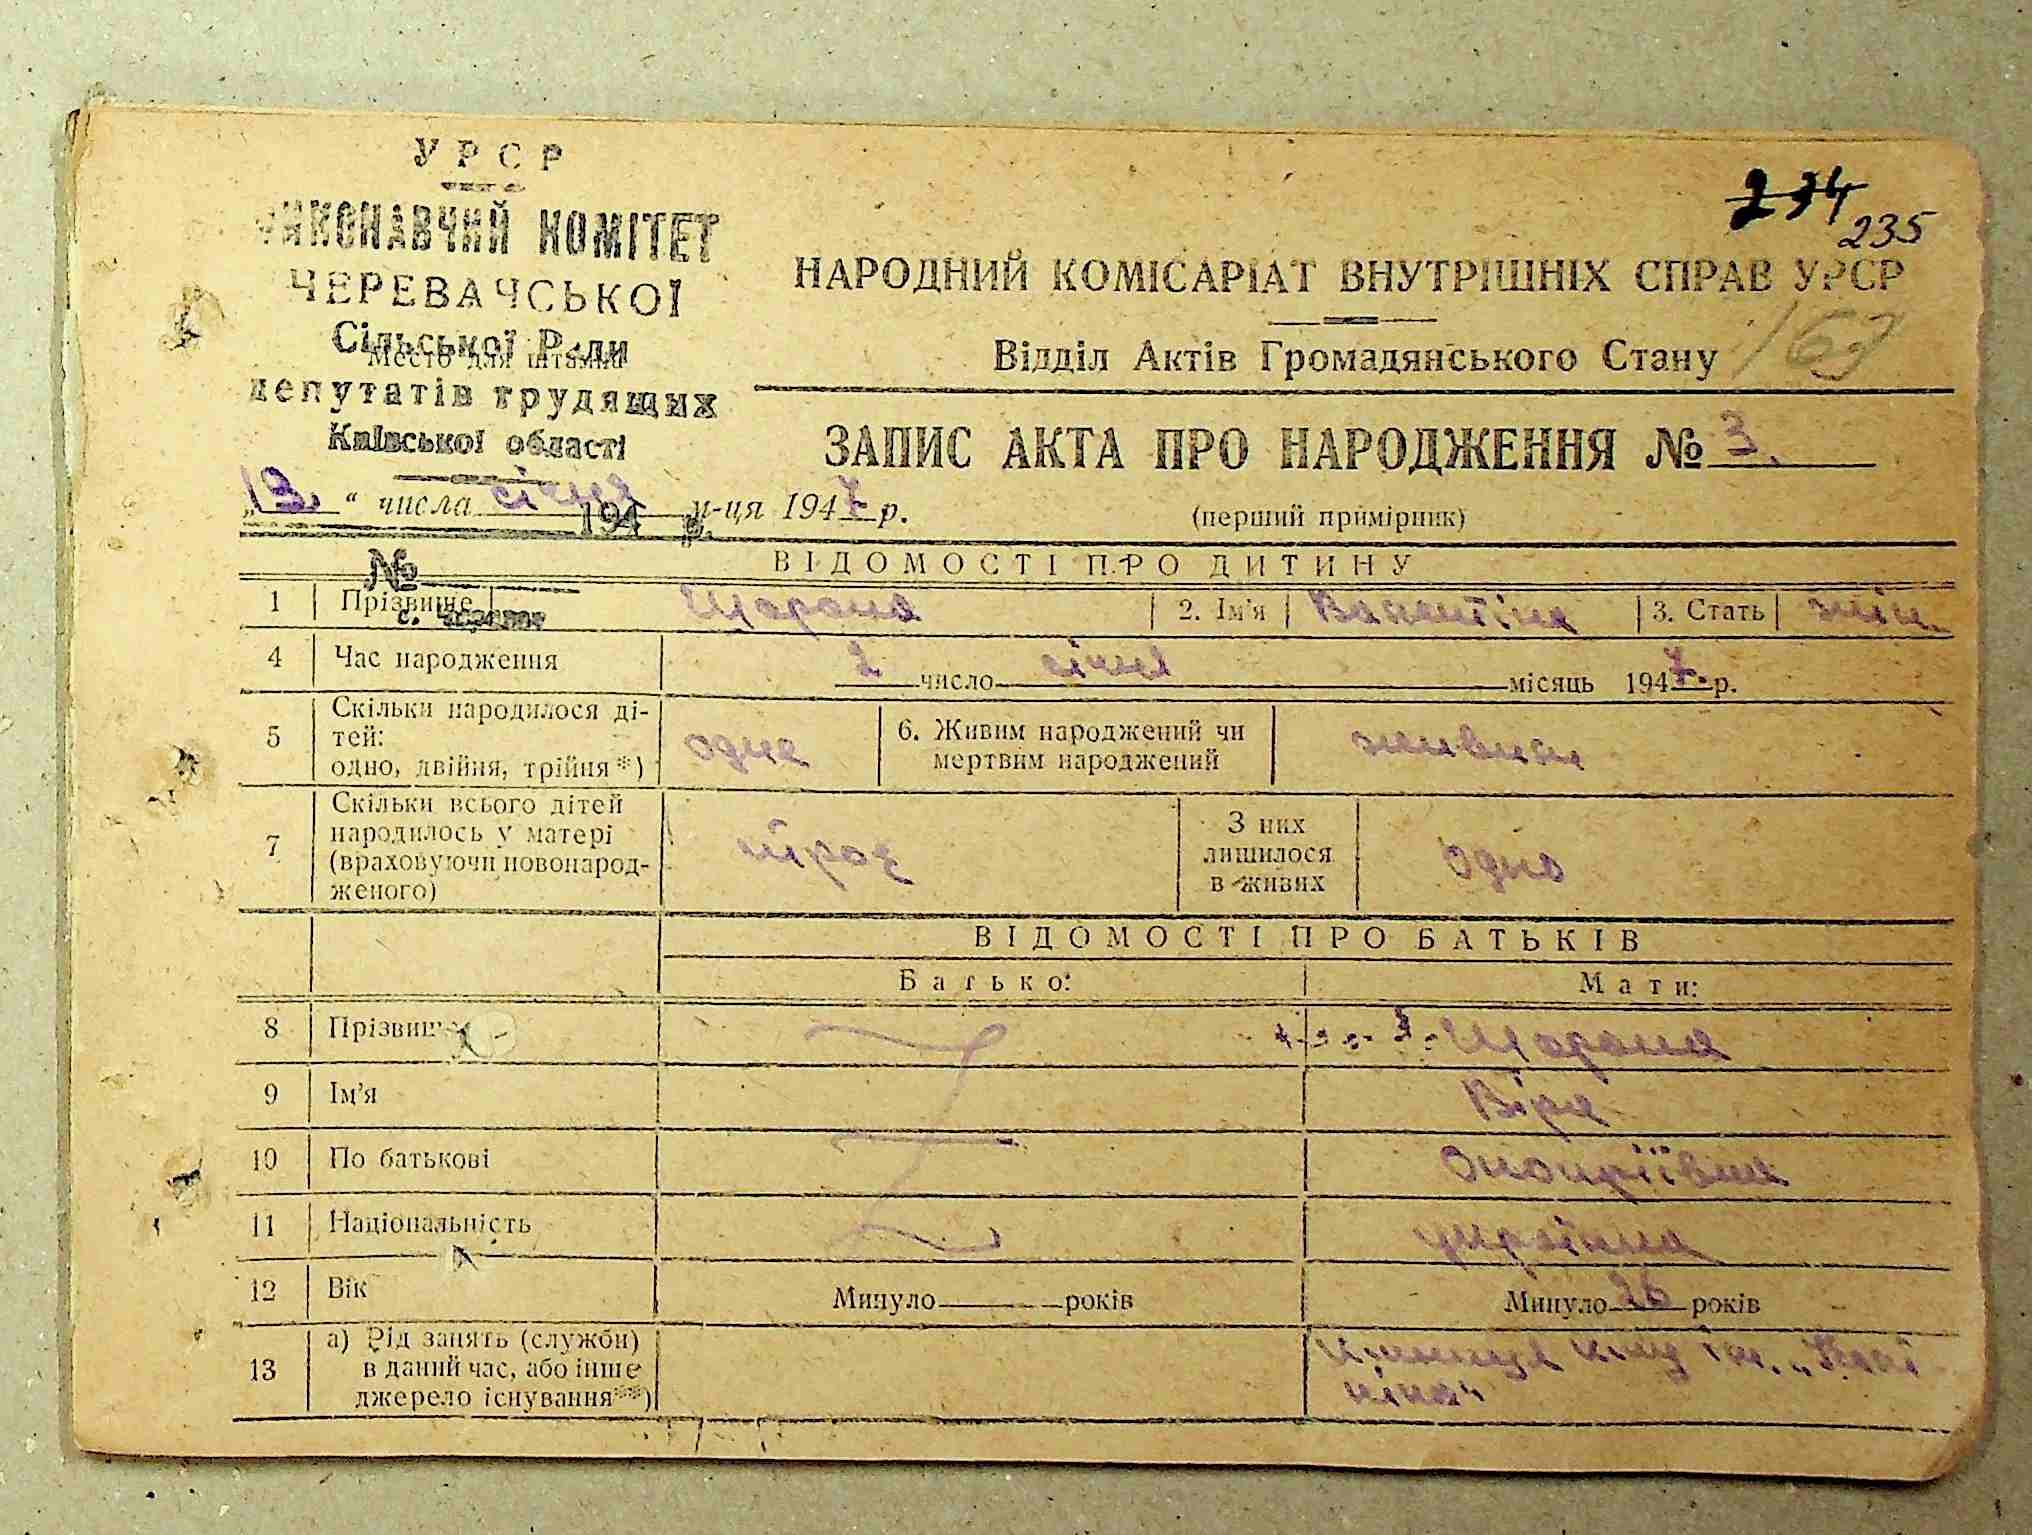 УРСР
ВИКОНАВЧИЙ КОМІТЕТ
ЧЕРЕВАЧСЬКОЇ
Сільської Ради
Место для штампа
депутатів трудящих
Київської області
234
235
НАРОДНИЙ КОМІСАРІАТ ВНУТРІШНІХ СПРАВ УРСР
Відділ Актів Громадянського Стану
ЗАПИС АКТА ПРО НАРОДЖЕННЯ № 3.
„13.“ числа січня м-ця 1947 р.
(перший примірник)
194 р.
№
ВІДОМОСТІ ПРО ДИТИНУ
1 Прізвище 2. Ім'я Валентіна 3. Стать жін.
с.
4 Час народження 2 число січня місяць 1947. р.
5 Скільки народилося ді-
тей:
одно, двійня, трійня*) одне 6. Живим народжений чи
мертвим народжений живим
7 Скільки всього дітей
народилось у матері
(враховуючи новонарод-
женого) троє З них
лишилося
в живих одно
ВІДОМОСТІ ПРО БАТЬКІВ
Батько: Мати:
8 Прізвище
9 Ім'я Віра
10 По батькові
11 Національність українка
12 Вік Минуло років Минуло 26 років
13 а) Рід занять (служби)
в даний час, або інше
джерело існування**)